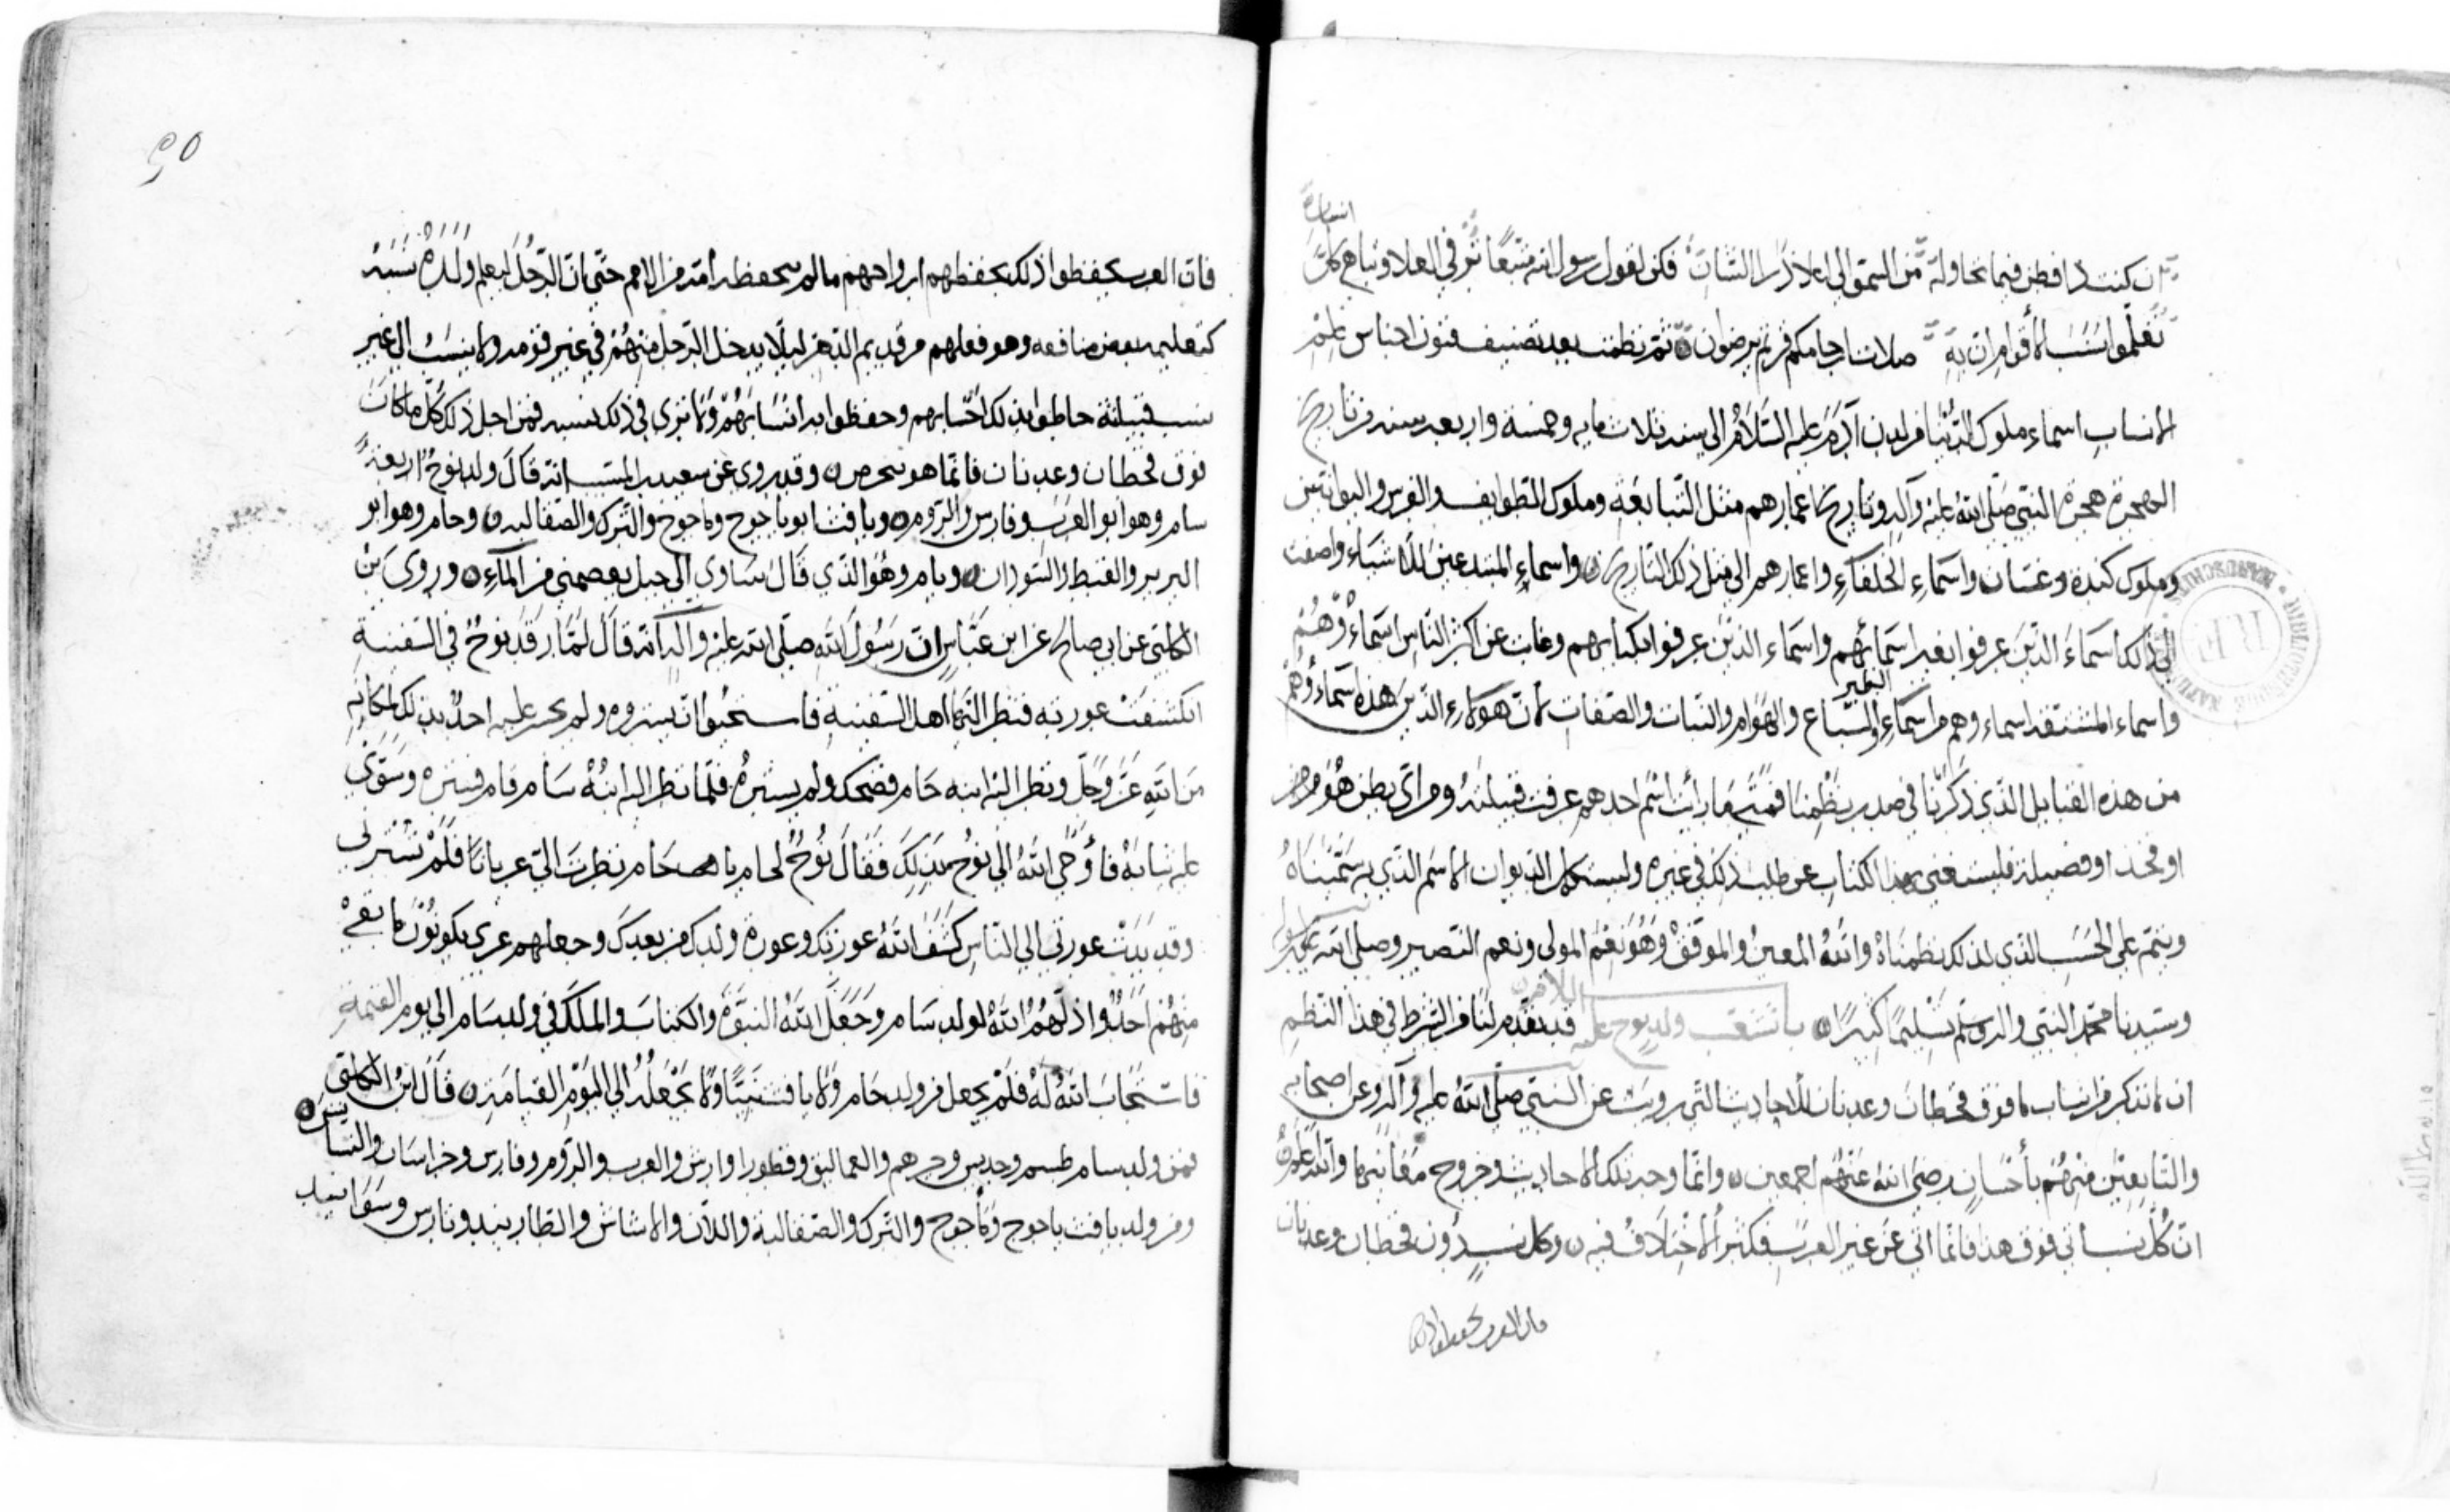 ان كنت ذا فطن فيما تحاوله من السمو الى اعلا ذرا فكن لقول رسول الله متبعا ترقى العلا وتباهي كل انسان
تعلموا نسب الأقوام ان به صلات ارحامكم ثم نظمت بعد تصنيف فنون اجناس علم
الانساب اسماء ملوك الدنيا من لدن آدم عليه السلام الى سنة ثلاث مايه وخمسة واربعين سنة من تاريخ
الهجرة هجرة النبي صلى الله عليه وآله وتاريخ اعمارهم مثل التبابعة وملوك الطوايف والفرس واليونانيين
وملوك كندة وغسان واسماء الخلفاء واعمارهم الى مثل ذلك التاريخ واسماء المبتدعين للاشياء واضفت
الى ذلك اسماء الذين عرفوا بغير اسمائهم واسماء الذين عرفوا بكناهم وغاب عن اكثر الناس اسماءهم
واسماء المشتقة اسماءهم من اسماء الطير والسباع والهوام والنبات والصفات لأن هولاء الذين هذه اسماءهم
من هذه القبايل الذي ذكرنا في صدر نظمنا فمتى ما رأيت اسم احدهم عرفت قبيلته ومن اي بطن هو
او فخذ او فصيلة فليستغني بهذا الكتاب عن طلب ذلك في غيره وليستكمل الديوان الاسم الذي به سميناه
ويتم على الحسب الذي لذلك نظمناه والله المعين والموفق وهو نعم المولى ونعم النصير وصلى الله على رسوله
وسيدنا محمد النبي وآله وسلم تسليما كثيرا باب تشعب ولد نوح عليه السلام قد تقدم لنا من الشرط في هذا النظم
ان لا نذكر من انساب ما فوق قحطان وعدنان للأحاديث التي رويت عن النبي صلى الله عليه وآله وعن اصحابه
والتابعين منهم بأحسان رضي الله عنهم اجمعين وانما وجه تلك الاحاديث وخروج معانيها والله اعلم
ان كل نسب أتى فوق هذا فانما أتى عن غير العرب فكثر الأختلاف فيه وكل نسب دون قحطان وعدنان
فان العرب يحفظوا ذلك
فان العرب يحفظوا ذلك يحفظهم ارواحهم ما لم يحفظه أمة من الامم حتى ان الرجل ليعلم ولده نسبه
كتعليمه بعض منافعه وهو فعلهم من قديم الدهر ليلا يدخل الرجل منهم في غير قومه ولا ينسب الى غير
نسب قبيلته حاطوا بذلك احسابهم وحفظوا به انسابهم ولا نرى في ذلك نسبه فمن اجل ذلك كل ما كان
فوق قحطان وعدنان فانما هو تخرص وقد روي عن سعيد بن المسيب انه قال ولد نوح اربعة
سام وهو ابو العرب وفارس والروم ويافث ابو ياجوج وماجوج والترك والصقالبه وحام وهو ابو
البربر والقبط والسودان ويام وهو الذي قال سآوي الى جبل يعصمني من الماء وروى بن
الكلبي عن ابي صالح عن ابن عباس ان رسول الله صلى الله عليه وآله انه قال لما رقد نوح في السفينة
انكشفت عورته فنظر اليها اهل السفينة فاستحيوا ان يستروه ولم يجز عليه احد بذلك لمكانه
من الله عز وجل ونظر اليه ابنه حام فضحك ولم يستره فلما نظر اليه ابنه سام قام فستره وسوى
عليه ثيابه فأوحى الله الى نوح بذلك فقال نوح لحام يا حام نظرت الي عريانا فلم تسترني
وقد بدت عورتي الى الناس كشف الله عورتك وعورة ولدك من بعدك وجعلهم عرى يكونون لا يقي
منهم احدا واذلهم الله لولد سام وجعل الله النبوة والكتاب والملك في ولد سام الى يوم القيمة
فاستجاب الله له فلم يجعل من ولد حام ولا يافث نبيا ولا يجعله الى اليوم القيامة قال ابن الكلبي
فمن ولد سام طسم وجديس وجرهم والعماليق وقطورا وارش والعرب والروم وفارس وخراسان والنسناس
ومن ولد يافث ياجوج وماجوج والترك والصقالبة واللان والاشاش والطاربند وتارس